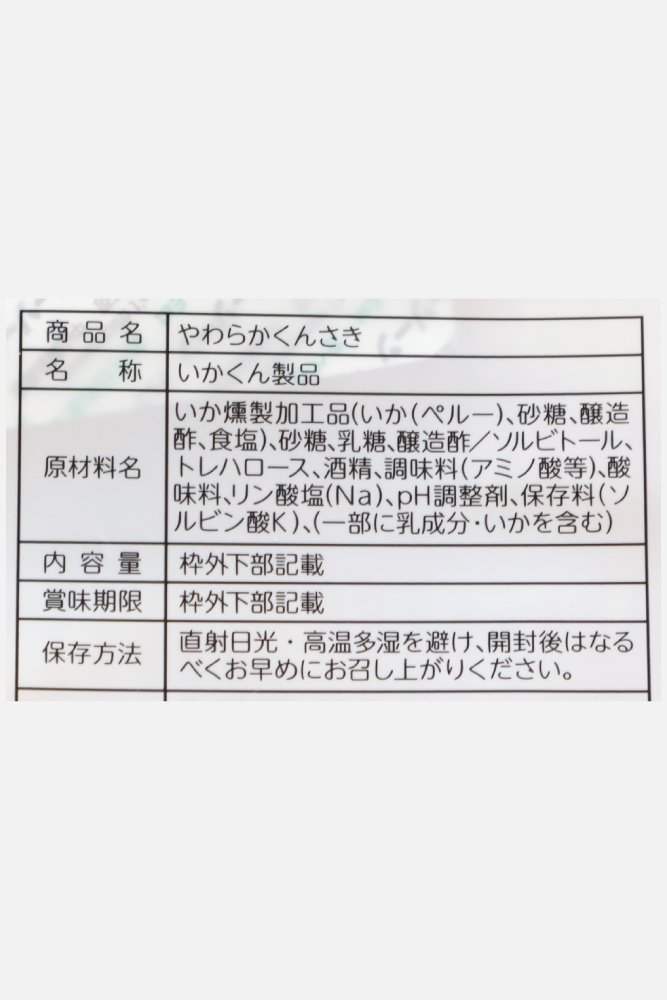 商品名 やわらかくんさき
名称 いかくん製品
原材料名 いか燻製加工品(いか(ペルー)、砂糖、醸造
酢、食塩)、砂糖、乳糖、醸造酢／ソルビトール、
トレハロース、酒精、調味料(アミノ酸等)、酸
味料、リン酸塩(Na)、pH調整剤、保存料(ソ
ルビン酸K)、(一部に乳成分・いかを含む)
内容量 枠外下部記載
賞味期限 枠外下部記載
保存方法 直射日光・高温多湿を避け、開封後はなる
べくお早めにお召し上がりください。